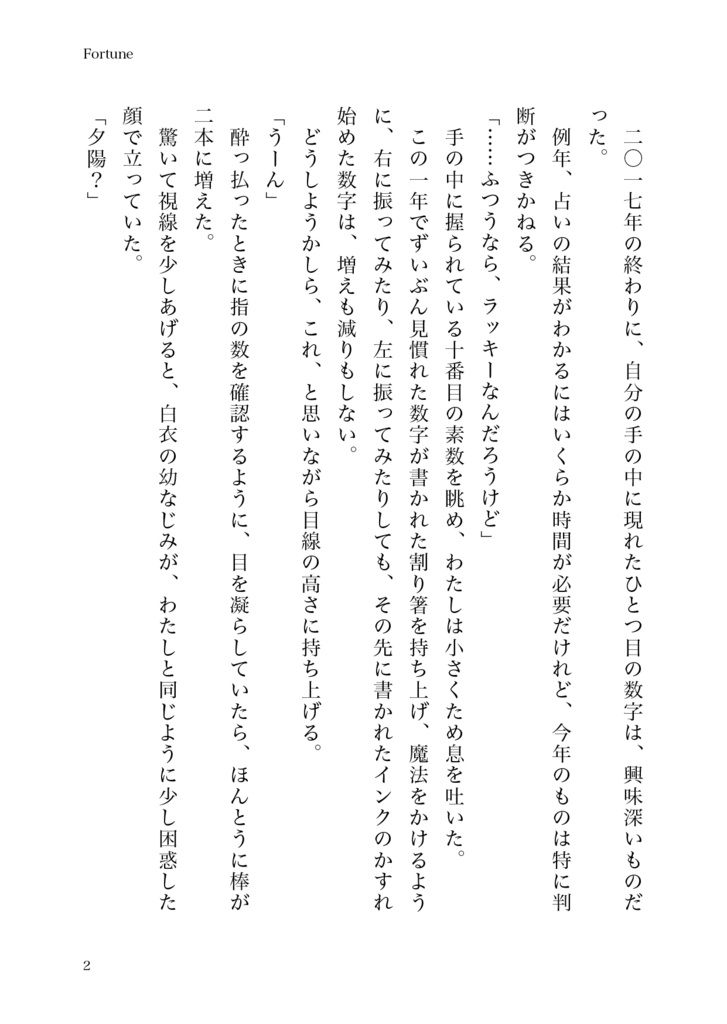 Fortune
二〇一七年の終わりに、自分の手の中に現れたひとつ目の数字は、興味深いものだ
った。
例年、占いの結果がわかるにはいくらか時間が必要だけれど、今年のものは特に判
断がつきかねる。
「……ふつうなら、ラッキーなんだろうけど」
手の中に握られている十番目の素数を眺め、わたしは小さくため息を吐いた。
この一年でずいぶん見慣れた数字が書かれた割り箸を持ち上げ、魔法をかけるよう
に、右に振ってみたり、左に振ってみたりしても、その先に書かれたインクのかすれ
始めた数字は、増えも減りもしない。
どうしようかしら、これ、と思いながら目線の高さに持ち上げる。
「うーん」
酔っ払ったときに指の数を確認するように、目を凝らしていたら、ほんとうに棒が
二本に増えた。
驚いて視線を少しあげると、白衣の幼なじみが、わたしと同じように少し困惑した
顔で立っていた。
「夕陽？」
2